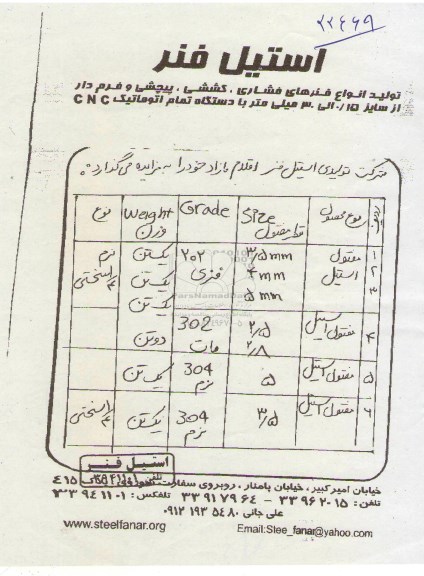 ۲۲۴۶۹
استیل فنر
تولید انواع فنرهای فشاری ، کششی ، پیچشی و فرم دار
از سایز ۰/۱۵ الی ۳۰ میلی متر با دستگاه تمام اتوماتیک CNC
شرکت تولیدی استیل فنر اقلام مازاد خود را به مزایده می‌گذارد:
ردیف نوع محصول Size قطر مفتول Grade Weight وزن نوع
۱ مفتول ۳/۵ mm ۲۰۲ یک تن نرم
۲ استیل ۴ mm فنری یک تن
۳ ۵ mm یک تن
۴ مفتول استیل ۲/۵ 302 دو تن
۲/۸ مات
۵ مفتول استیل ۵ 304 نرم یک تن
۶ مفتول استیل ۳/۵ 304 نرم یک تن
استیل فنر
خیابان امیر کبیر، خیابان پامنار، روبروی سفارت
تلفن: ۳۳۹۶۲۰۱۵ – ۳۳۹۱۷۹۶۴ تلفکس: ۳۳۹۴۱۱۰۱
علی جانی ۰۹۱۲ ۱۹۳ ۵۴۸۰
www.steelfanar.org Email:Stee_fanar@yahoo.com